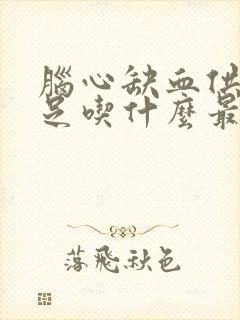 腦心缺血供
足喫什麼最
落飛秋色